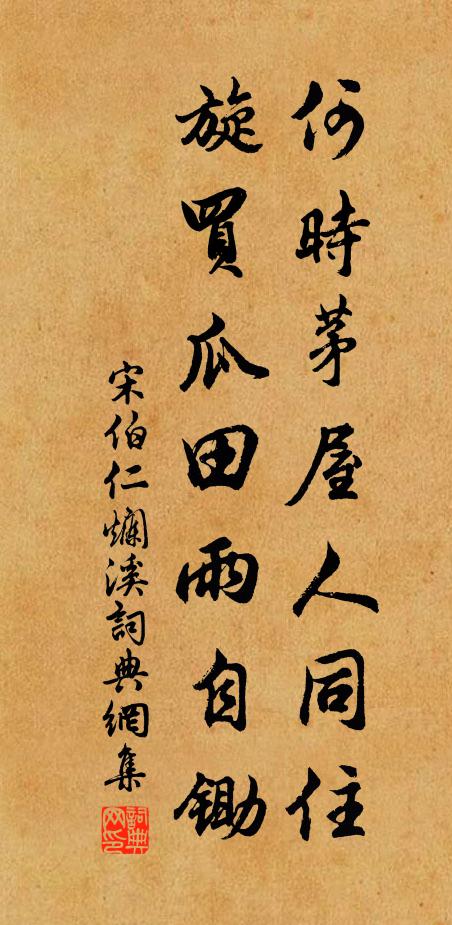 何時茅屋人同住
旋買瓜田雨自鋤
宋伯仁爛溪詞典網集
詞典网印